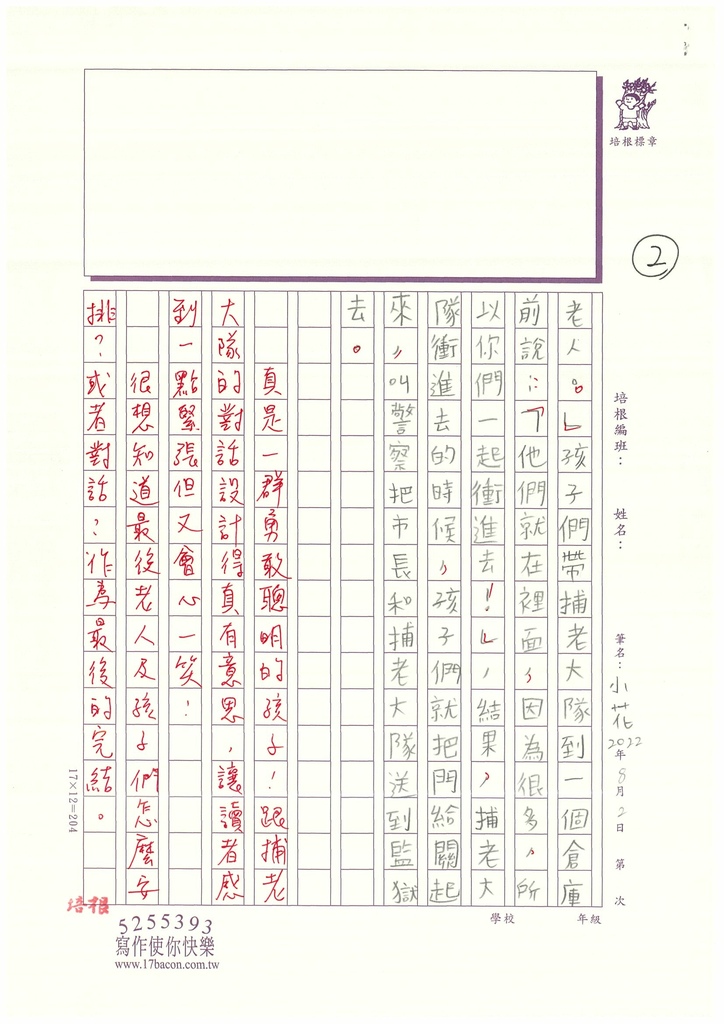 培根標章
2
培根編班：
姓名：
筆名：小花
2022年8月2日 第 次
學校 年級
老人。」孩子們帶捕老大隊到一個倉庫
前說：「他們就在裡面，因為很多，所
以你們一起衝進去！」，結果，捕老大
隊衝進去的時候，孩子們就把門給關起
來，叫警察把市長和捕老大隊送到監獄
去。
真是一群勇敢聰明的孩子！跟捕老
大隊的對話設計得真有意思，讓讀者感
到一點緊張但又會心一笑！
很想知道最後老人及孩子們怎麼安
排？或者對話？作為最後的完結。
17×12=204
培根
5255393
寫作使你快樂
www.17bacon.com.tw